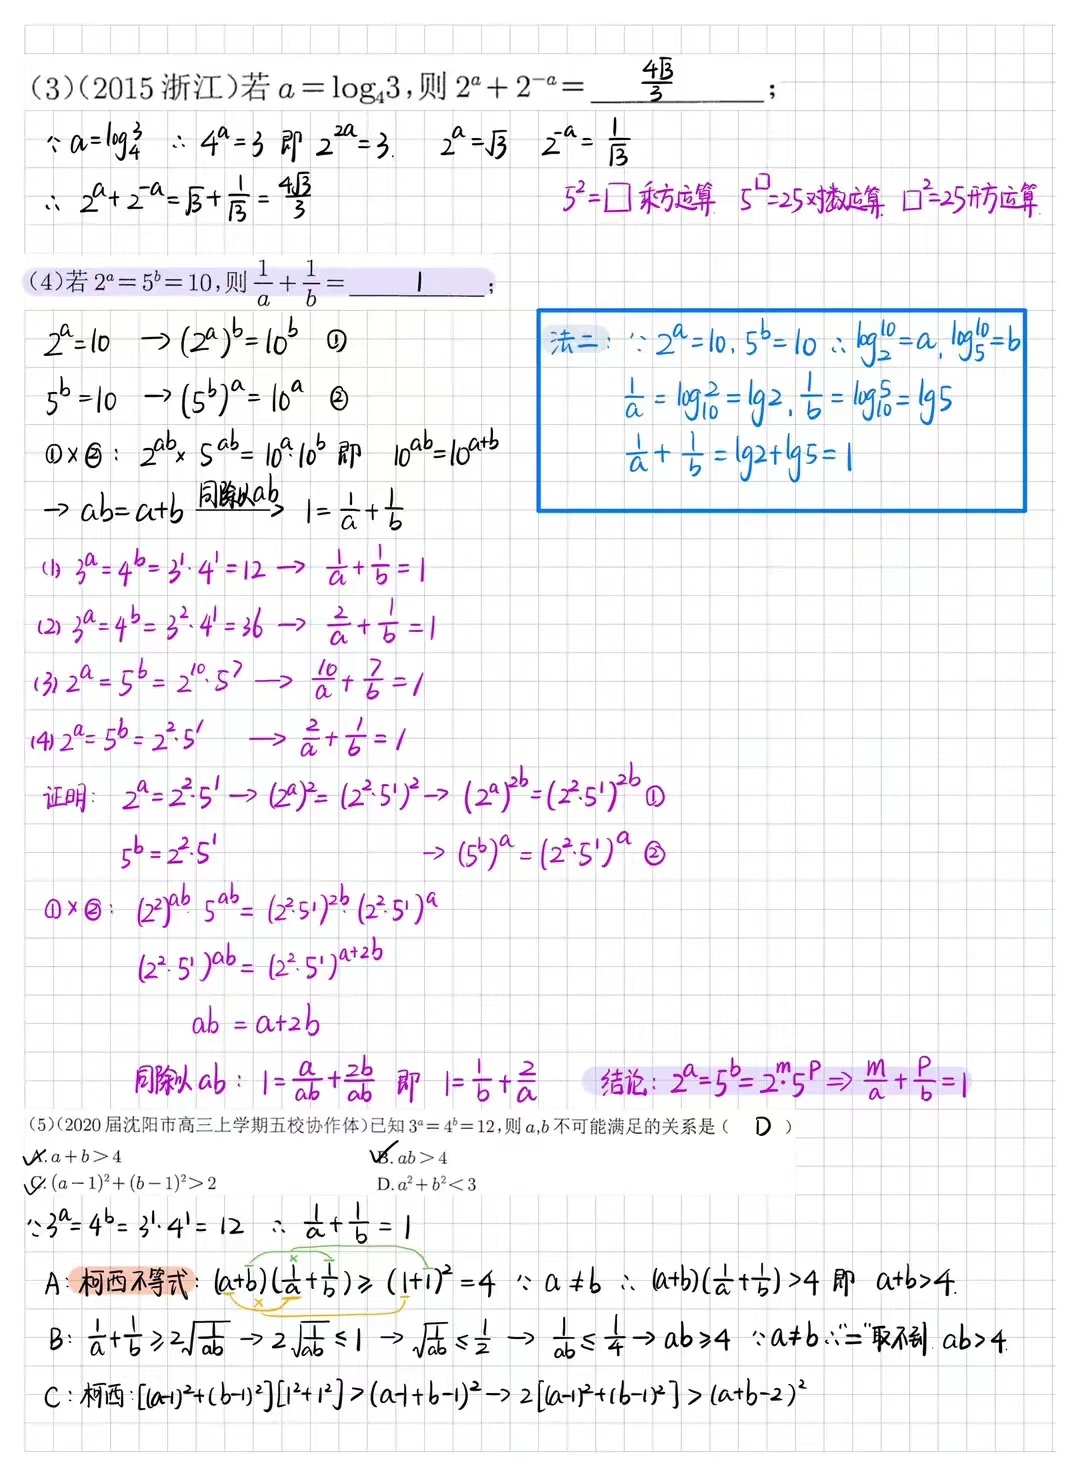 (3)(2015 浙江)若 a=log₄3,则 2ᵃ+2⁻ᵃ= 4√3/3 ;
∵ a=log₄3 ∴ 4ᵃ=3 即 2²ᵃ=3. 2ᵃ=√3 2⁻ᵃ=1/√3
∴ 2ᵃ+2⁻ᵃ=√3+1/√3=4√3/3
5²=□ 乘方运算 5^□=25对数运算 □²=25开方运算
(4)若 2ᵃ=5ᵇ=10,则 1/a+1/b= 1 ;
2ᵃ=10 →(2ᵃ)ᵇ=10ᵇ ①
5ᵇ=10 →(5ᵇ)ᵃ=10ᵃ ②
①×②: 2^(ab)×5^(ab)=10ᵃ·10ᵇ 即 10^(ab)=10^(a+b)
→ ab=a+b 同除以ab→ 1=1/a+1/b
法二: ∵ 2ᵃ=10, 5ᵇ=10 ∴ log₂10=a, log₅10=b
1/a=log₁₀2=lg2, 1/b=log₁₀5=lg5
1/a+1/b=lg2+lg5=1
(1) 3ᵃ=4ᵇ=3¹·4¹=12 → 1/a+1/b=1
(2) 3ᵃ=4ᵇ=3²·4¹=36 → 2/a+1/b=1
(3) 2ᵃ=5ᵇ=2¹⁰·5⁷ → 10/a+7/b=1
(4) 2ᵃ=5ᵇ=2²·5¹ → 2/a+1/b=1
证明: 2ᵃ=2²·5¹→(2ᵃ)²=(2²·5¹)²→(2ᵃ)^(2b)=(2²·5¹)^(2b) ①
5ᵇ=2²·5¹ →(5ᵇ)ᵃ=(2²·5¹)ᵃ ②
①×②: (2²)^(ab)·5^(ab)=(2²·5¹)^(2b)·(2²·5¹)ᵃ
(2²·5¹)^(ab)=(2²·5¹)^(a+2b)
ab=a+2b
同除以ab: 1=a/ab+2b/ab 即 1=1/b+2/a
结论: 2ᵃ=5ᵇ=2ᵐ·5ᵖ⇒m/a+p/b=1
(5)(2020 届沈阳市高三上学期五校协作体)已知 3ᵃ=4ᵇ=12,则 a,b 不可能满足的关系是( D )
A. a+b>4 B. ab>4
C. (a-1)²+(b-1)²>2 D. a²+b²<3
∵3ᵃ=4ᵇ=3¹·4¹=12 ∴ 1/a+1/b=1
A: 柯西不等式: (a+b)(1/a+1/b)≥(1+1)²=4 ∵ a≠b ∴ (a+b)(1/a+1/b)>4 即 a+b>4.
B: 1/a+1/b≥2√(1/ab)→2√(1/ab)≤1→√(1/ab)≤1/2→1/ab≤1/4→ab≥4 ∵a≠b∴"="取不到 ab>4.
C: 柯西: [(a-1)²+(b-1)²][1²+1²]>(a-1+b-1)²→2[(a-1)²+(b-1)²]>(a+b-2)²